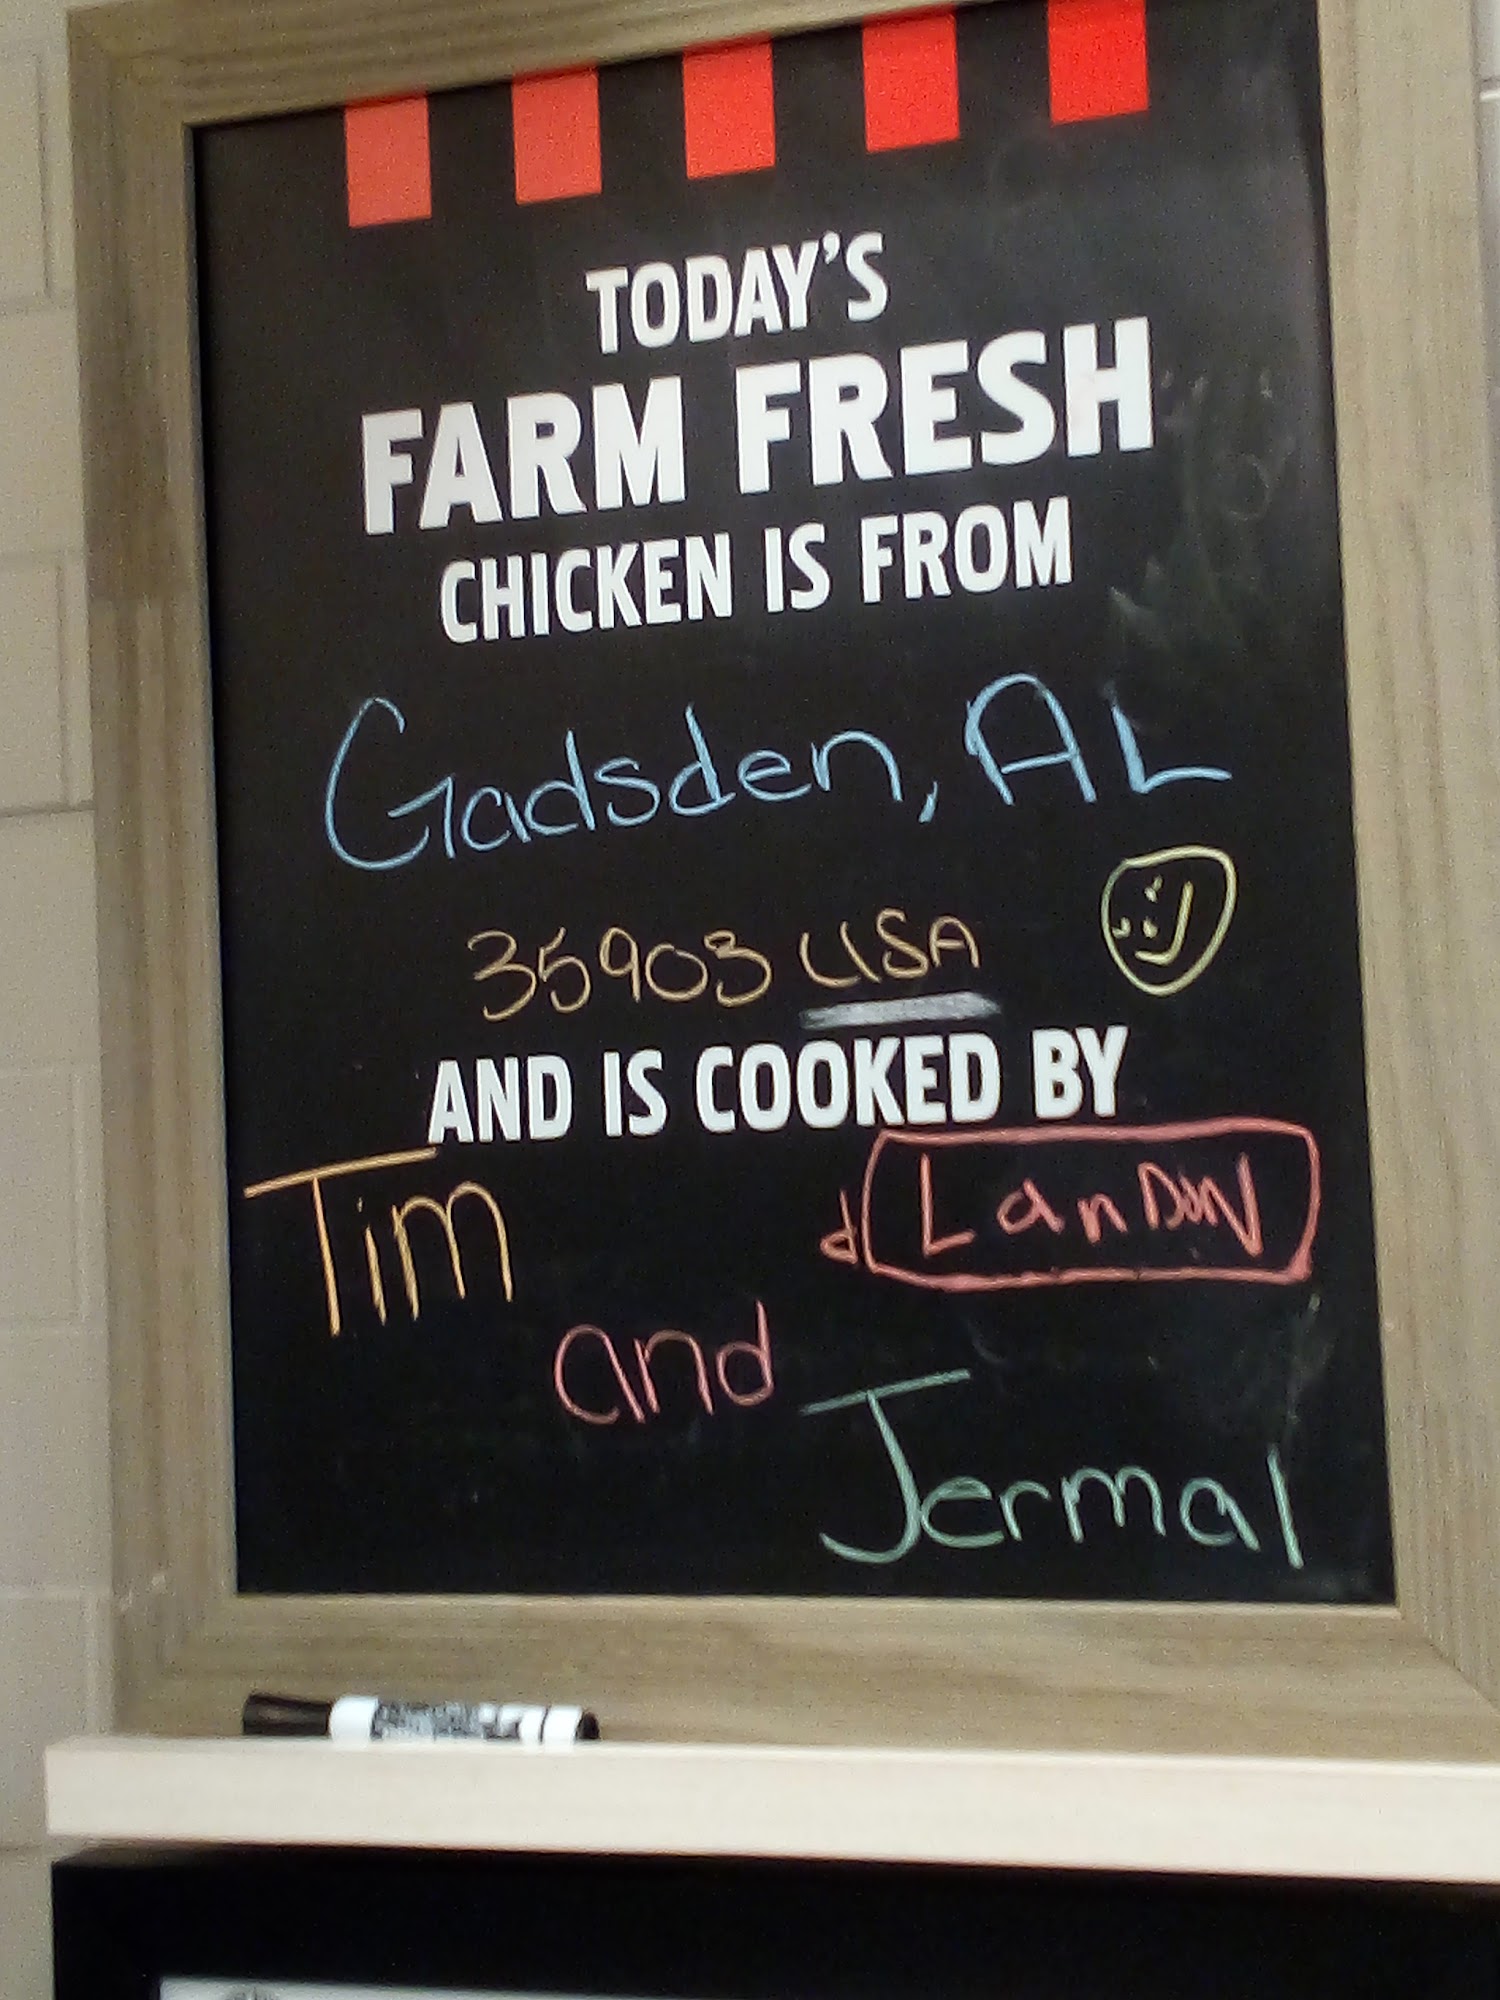 TODAY'S
FARM FRESH
CHICKEN IS FROM
Gadsden, AL
35903 USA
AND IS COOKED BY
Tim
LanDIN
and
Jermal